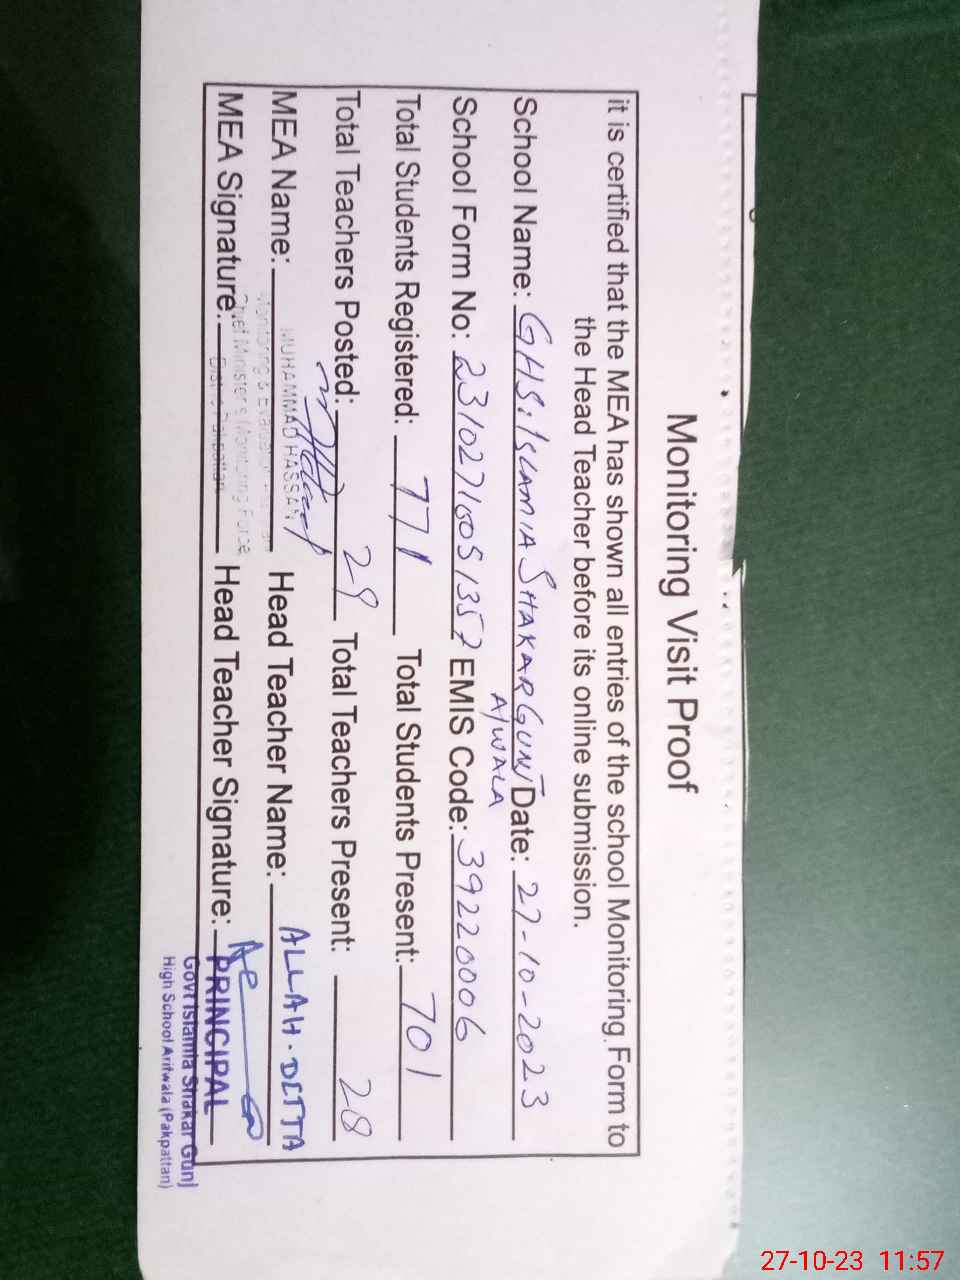 Monitoring Visit Proof
it is certified that the MEA has shown all entries of the school Monitoring Form to
the Head Teacher before its online submission.
School Name: GHS. ISLAMIA SHAKAR GUNJ Date: 27-10-2023
A/WALA
School Form No: EMIS Code: 39220006
Total Students Registered: 771 Total Students Present: 701
Total Teachers Posted: 29 Total Teachers Present: 28
MEA Name: Head Teacher Name: ALLAH. DITTA
MUHAMMAD HASSAN
Monitoring & Evaluation
Chief Minister's Monitoring Force
District Pakpattan
MEA Signature: Head Teacher Signature:
PRINCIPAL
Govt Islamia Shakar Gunj
High School Arifwala (Pakpattan)
27-10-23 11:57